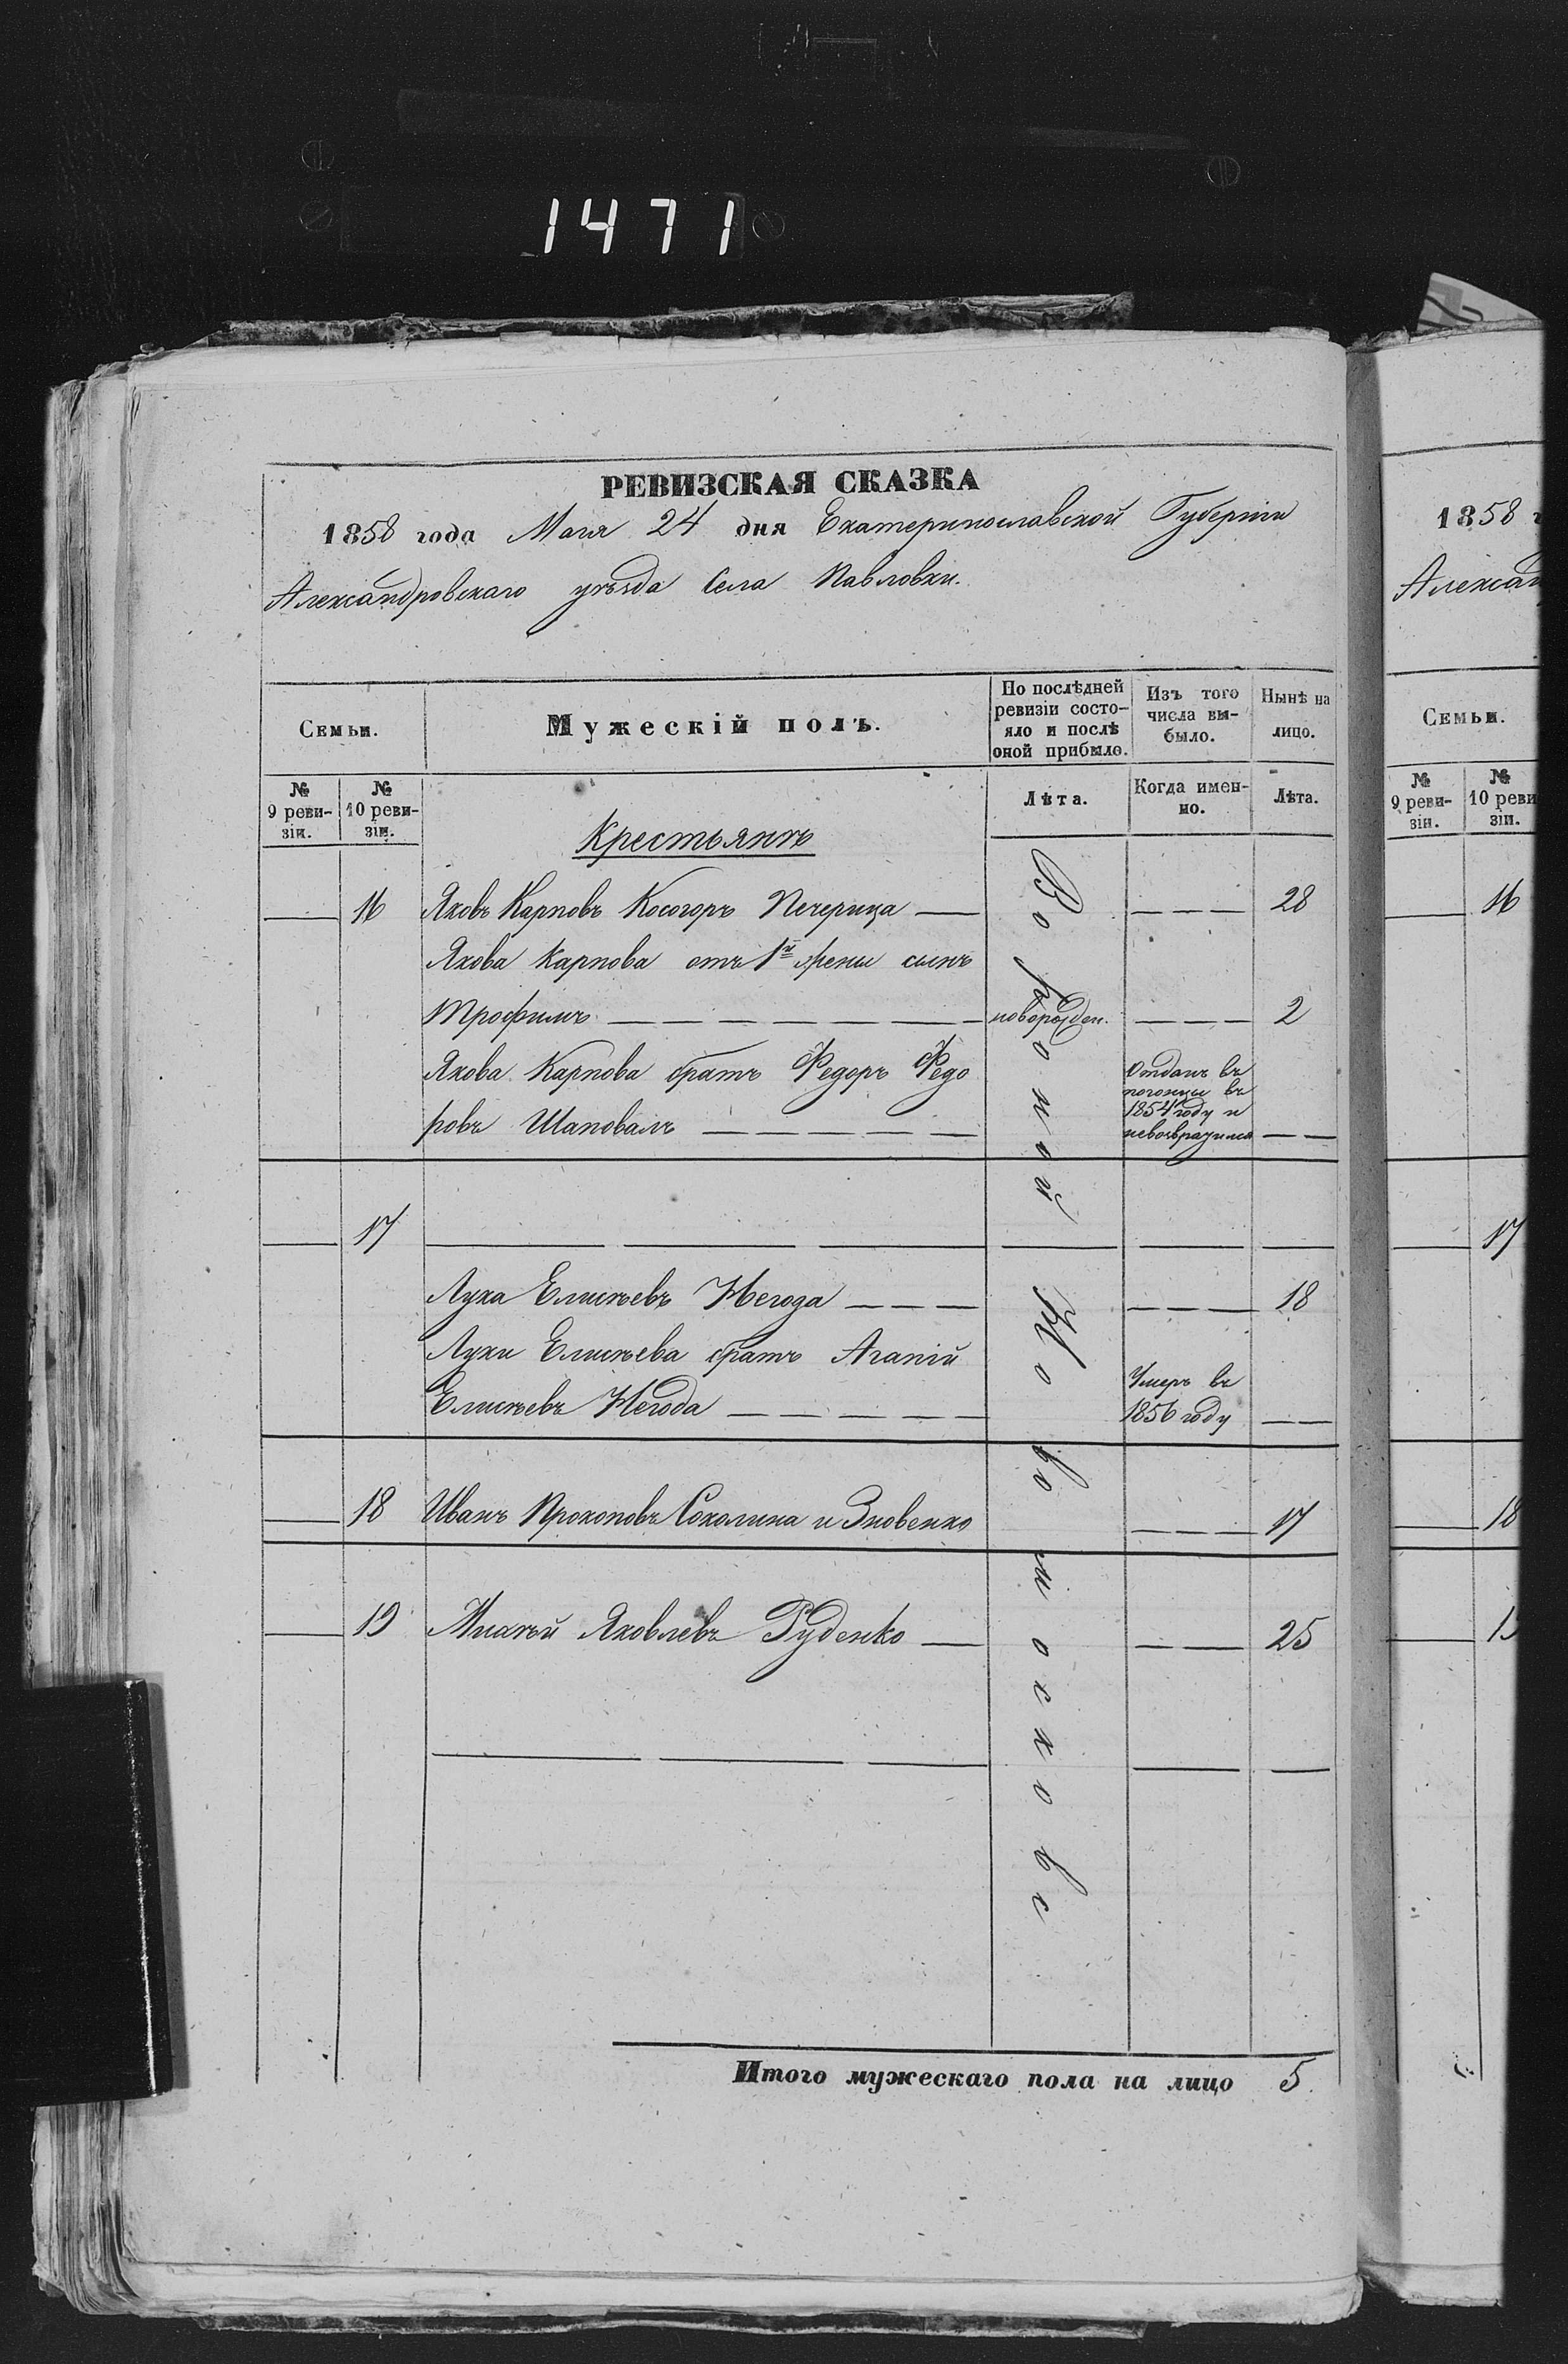 1471
РЕВИЗСКАЯ СКАЗКА
1858 года Маія 24 дня Екатеринославской Губерніи
Александровскаго уѣзда Села Павловки.
Семьи.
Мужескій полъ.
По послѣдней ревизіи состо-
яло и послѣ оной прибыло.
Изъ того числа вы-
было.
Нынѣ на лицо.
№ 9 реви-
зіи.
№ 10 реви-
зіи.
Лѣта.
Когда имен-
но.
Лѣта.
Крестьянъ
16 Яковъ Карповъ Косогоръ Печерица — — — — 28
Якова Карпова отъ 1й жены сынъ
Трофимъ — — — — — — — новорожден. — — — 2
Якова Карпова братъ Федоръ Федо
ровъ Шаповалъ — — — — —
Отданъ въ
погонцы въ
1854 году и
невозвратился — —
17
Лука Елисѣевъ Негода — — — — — — 18
Луки Елисѣева братъ Агапій
Елисѣевъ Негода — — — — —
Умеръ въ
1856 году — —
18 Иванъ Прокоповъ Соколина и Зновенко — — — 17
19 Михѣй Яковлевъ Руденко — — — 25
Итого мужескаго пола на лицо 5.
1858 г
Алексан
Семьи.
№ 9 реви-
зіи.
№ 10 реви
зіи.
16
17
18